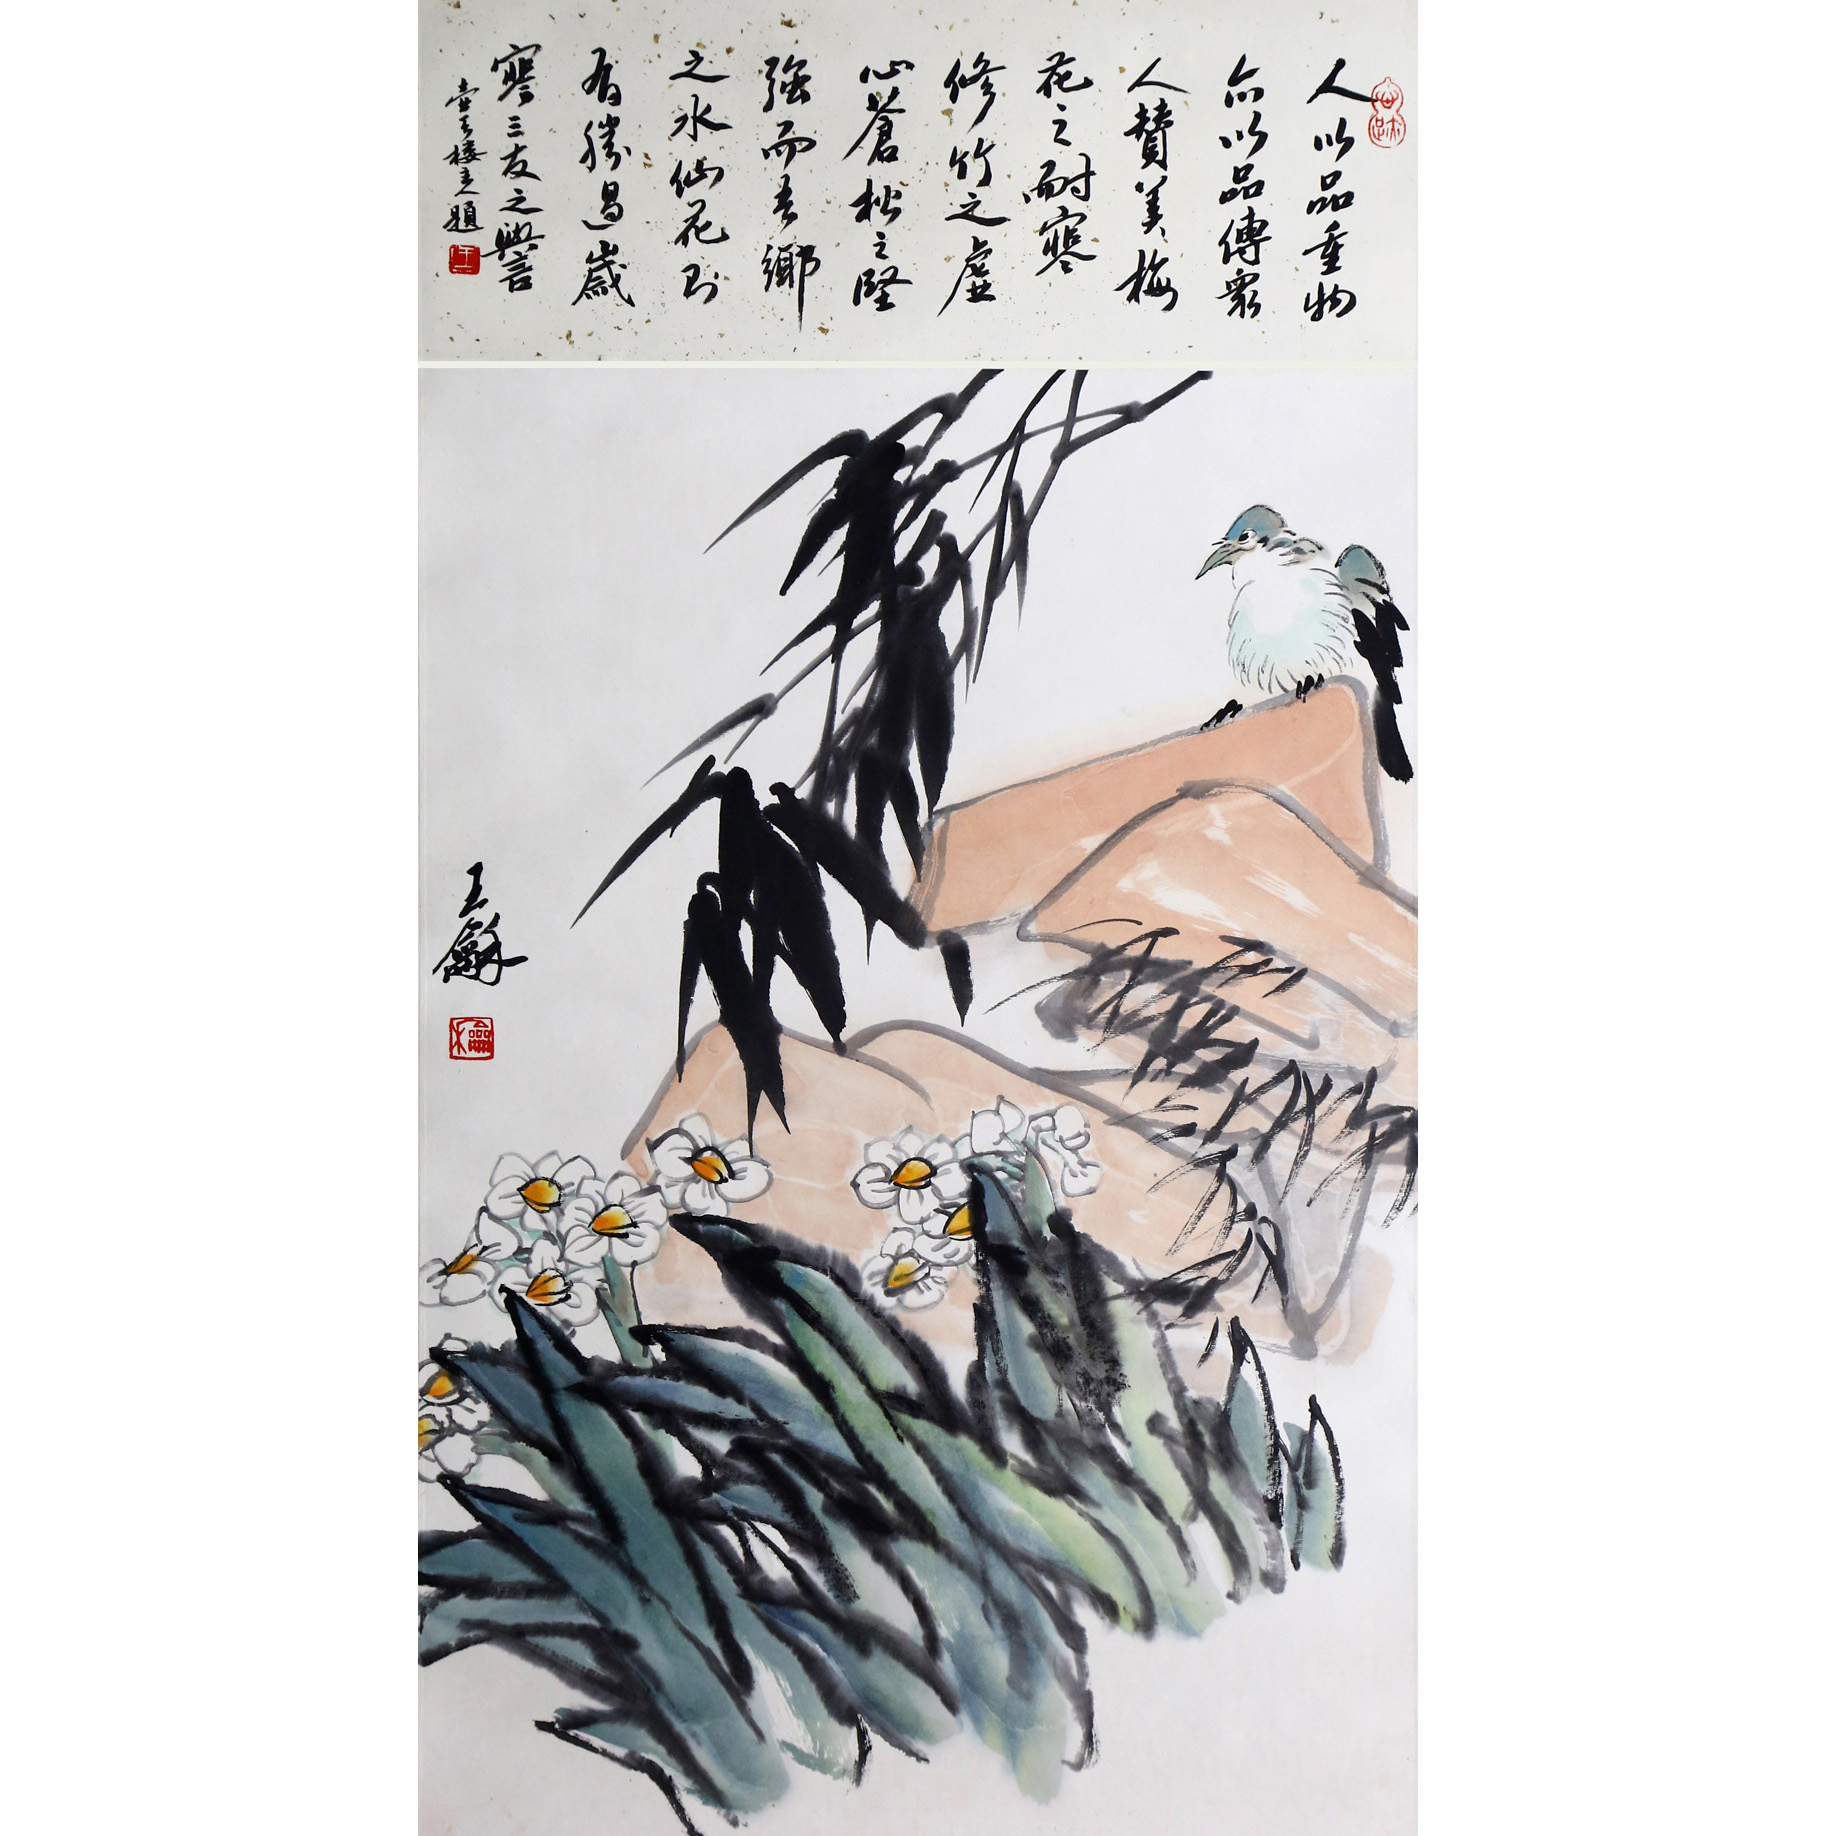 人以品重物
亦以品傳眾
人贊美梅
花之耐寒
修竹之虛
心蒼松之堅
強而吾鄉
之水仙花則
有勝過歲
寒三友之譽
樓主題
王
王龢
龢